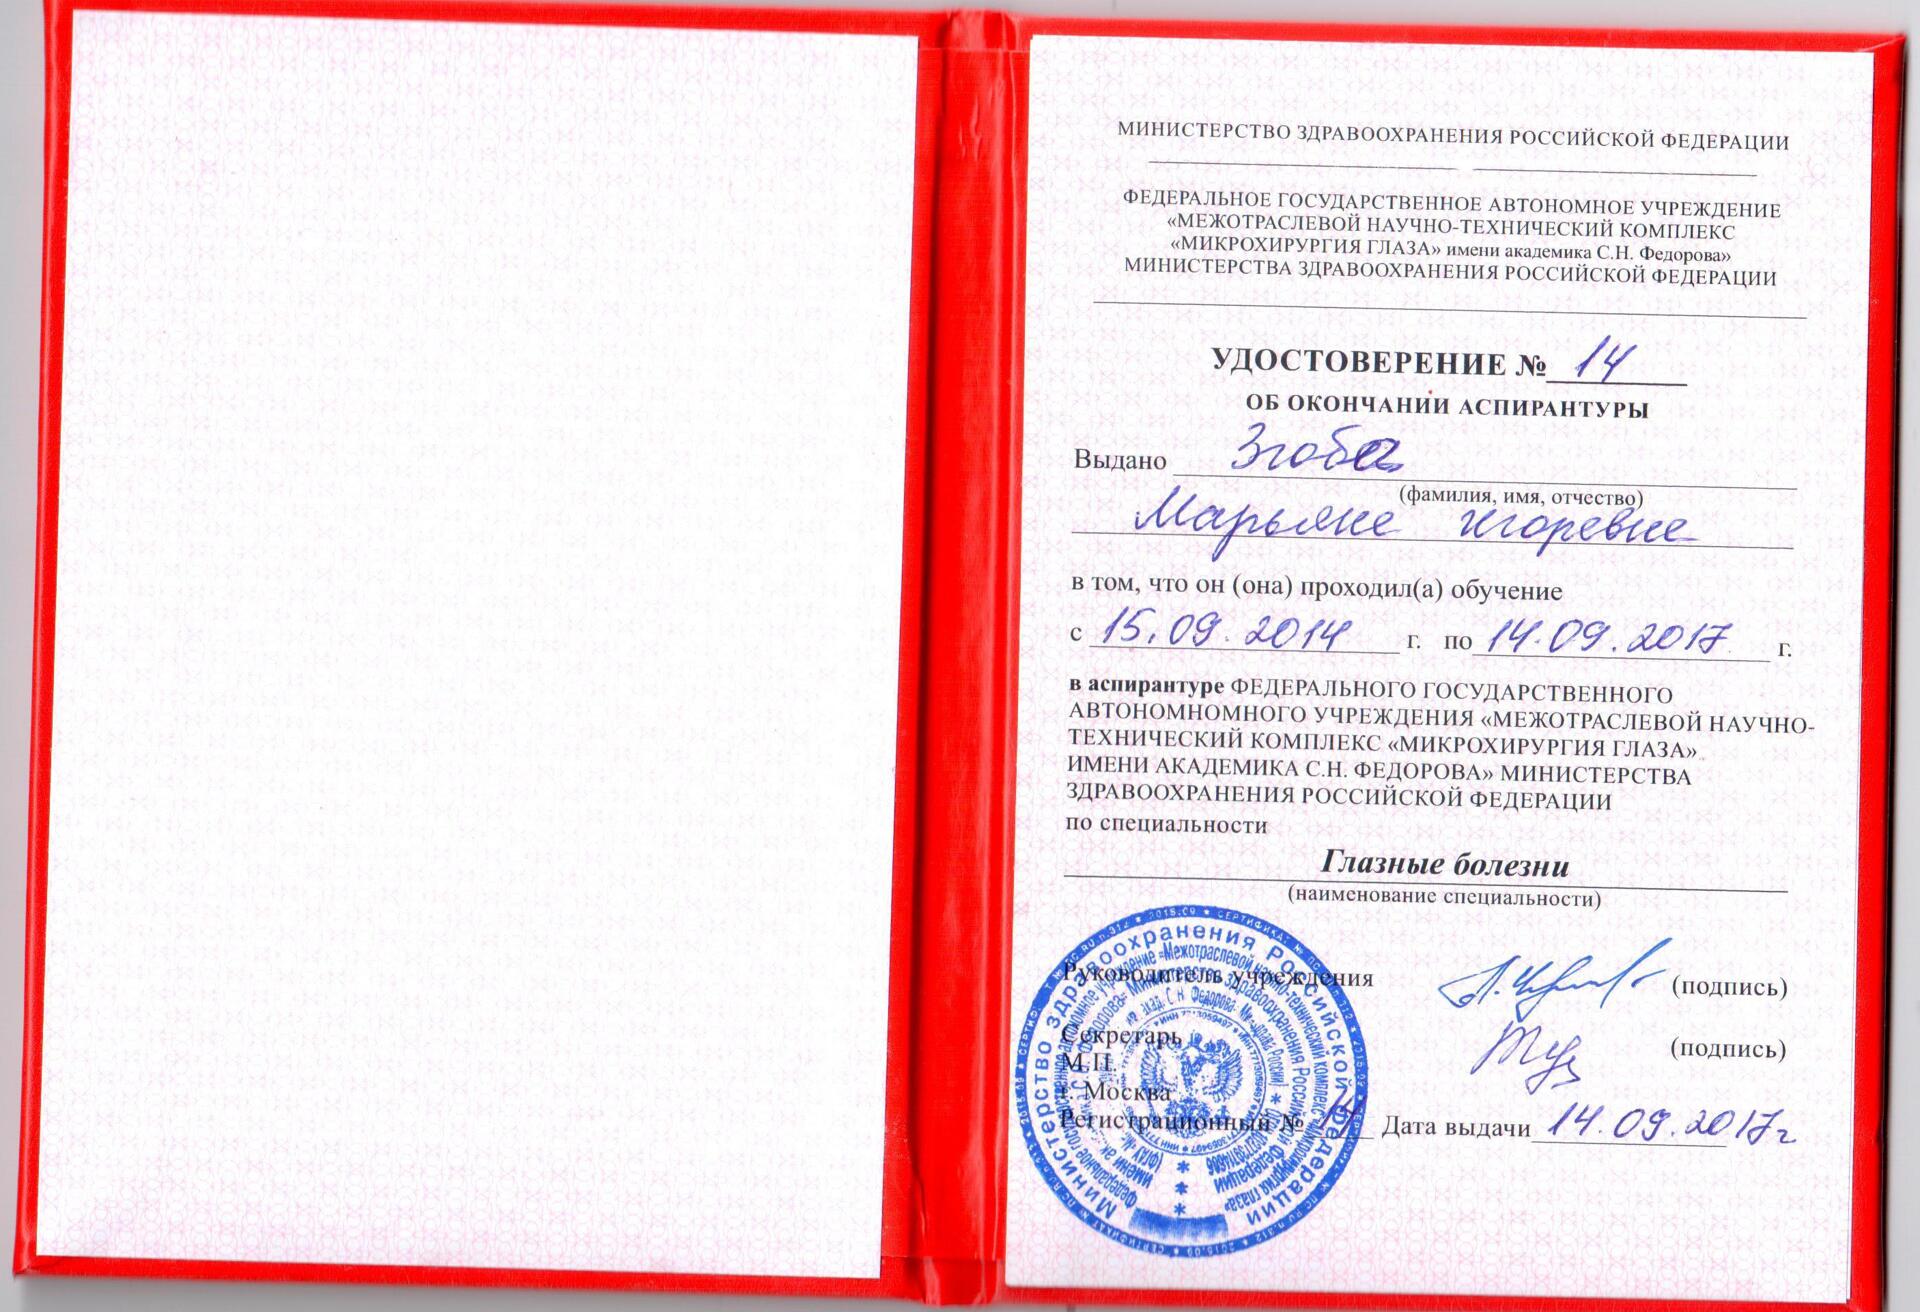 МИНИСТЕРСТВО ЗДРАВООХРАНЕНИЯ РОССИЙСКОЙ ФЕДЕРАЦИИ
ФЕДЕРАЛЬНОЕ ГОСУДАРСТВЕННОЕ АВТОНОМНОЕ УЧРЕЖДЕНИЕ
«МЕЖОТРАСЛЕВОЙ НАУЧНО-ТЕХНИЧЕСКИЙ КОМПЛЕКС
«МИКРОХИРУРГИЯ ГЛАЗА» имени академика С.Н. Федорова»
МИНИСТЕРСТВА ЗДРАВООХРАНЕНИЯ РОССИЙСКОЙ ФЕДЕРАЦИИ
УДОСТОВЕРЕНИЕ № 14
ОБ ОКОНЧАНИИ АСПИРАНТУРЫ
Выдано Згоба
(фамилия, имя, отчество)
Марьяне Игоревне
в том, что он (она) проходил(а) обучение
с 15.09.2014 г. по 14.09.2017 г.
в аспирантуре ФЕДЕРАЛЬНОГО ГОСУДАРСТВЕННОГО
АВТОНОМНОМНОГО УЧРЕЖДЕНИЯ «МЕЖОТРАСЛЕВОЙ НАУЧНО-
ТЕХНИЧЕСКИЙ КОМПЛЕКС «МИКРОХИРУРГИЯ ГЛАЗА»
ИМЕНИ АКАДЕМИКА С.Н. ФЕДОРОВА» МИНИСТЕРСТВА
ЗДРАВООХРАНЕНИЯ РОССИЙСКОЙ ФЕДЕРАЦИИ
по специальности
Глазные болезни
(наименование специальности)
Руководитель учреждения (подпись)
Секретарь (подпись)
М.П.
г. Москва
Регистрационный № 14 Дата выдачи 14.09.2017г
Министерство здравоохранения Российской Федерации